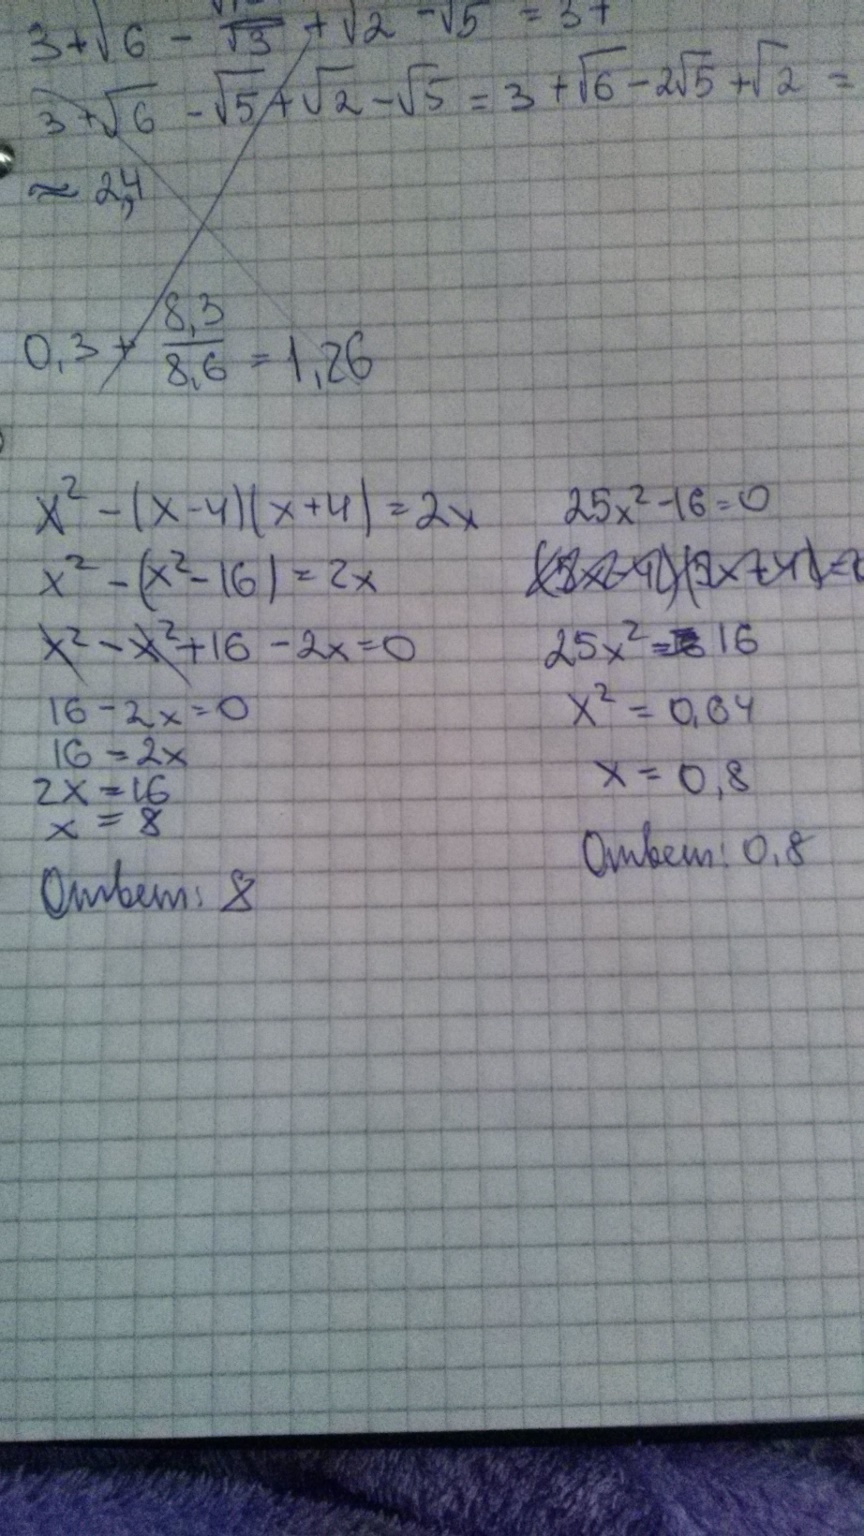 3+√6 - √5 + √2 - √5 = 3 + √6 - 2√5 + √2 =
≈ 2,4
0,3 + 8,3/8,6 = 1,26
x² - (x-4)(x+4) = 2x
x² - (x² - 16) = 2x
x² - x² + 16 - 2x = 0
16 - 2x = 0
16 = 2x
2x = 16
x = 8
Ответ: 8
25x² - 16 = 0
25x² = 16
x² = 0,64
x = 0,8
Ответ: 0,8